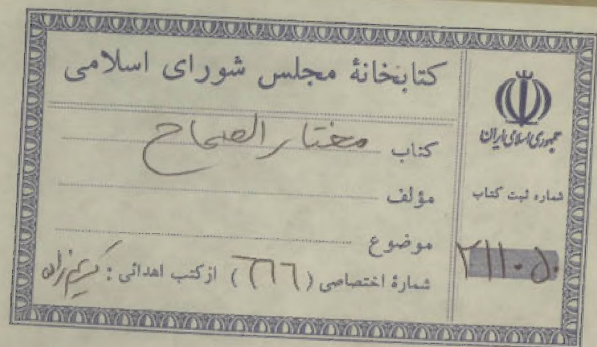 کتابخانهٔ مجلس شورای اسلامی
کتاب مختار الصحاح
مؤلف
موضوع
شمارهٔ اختصاصی (۶۶۶) از کتب اهدائی :
جمهوری اسلامی ایران
شماره ثبت کتاب